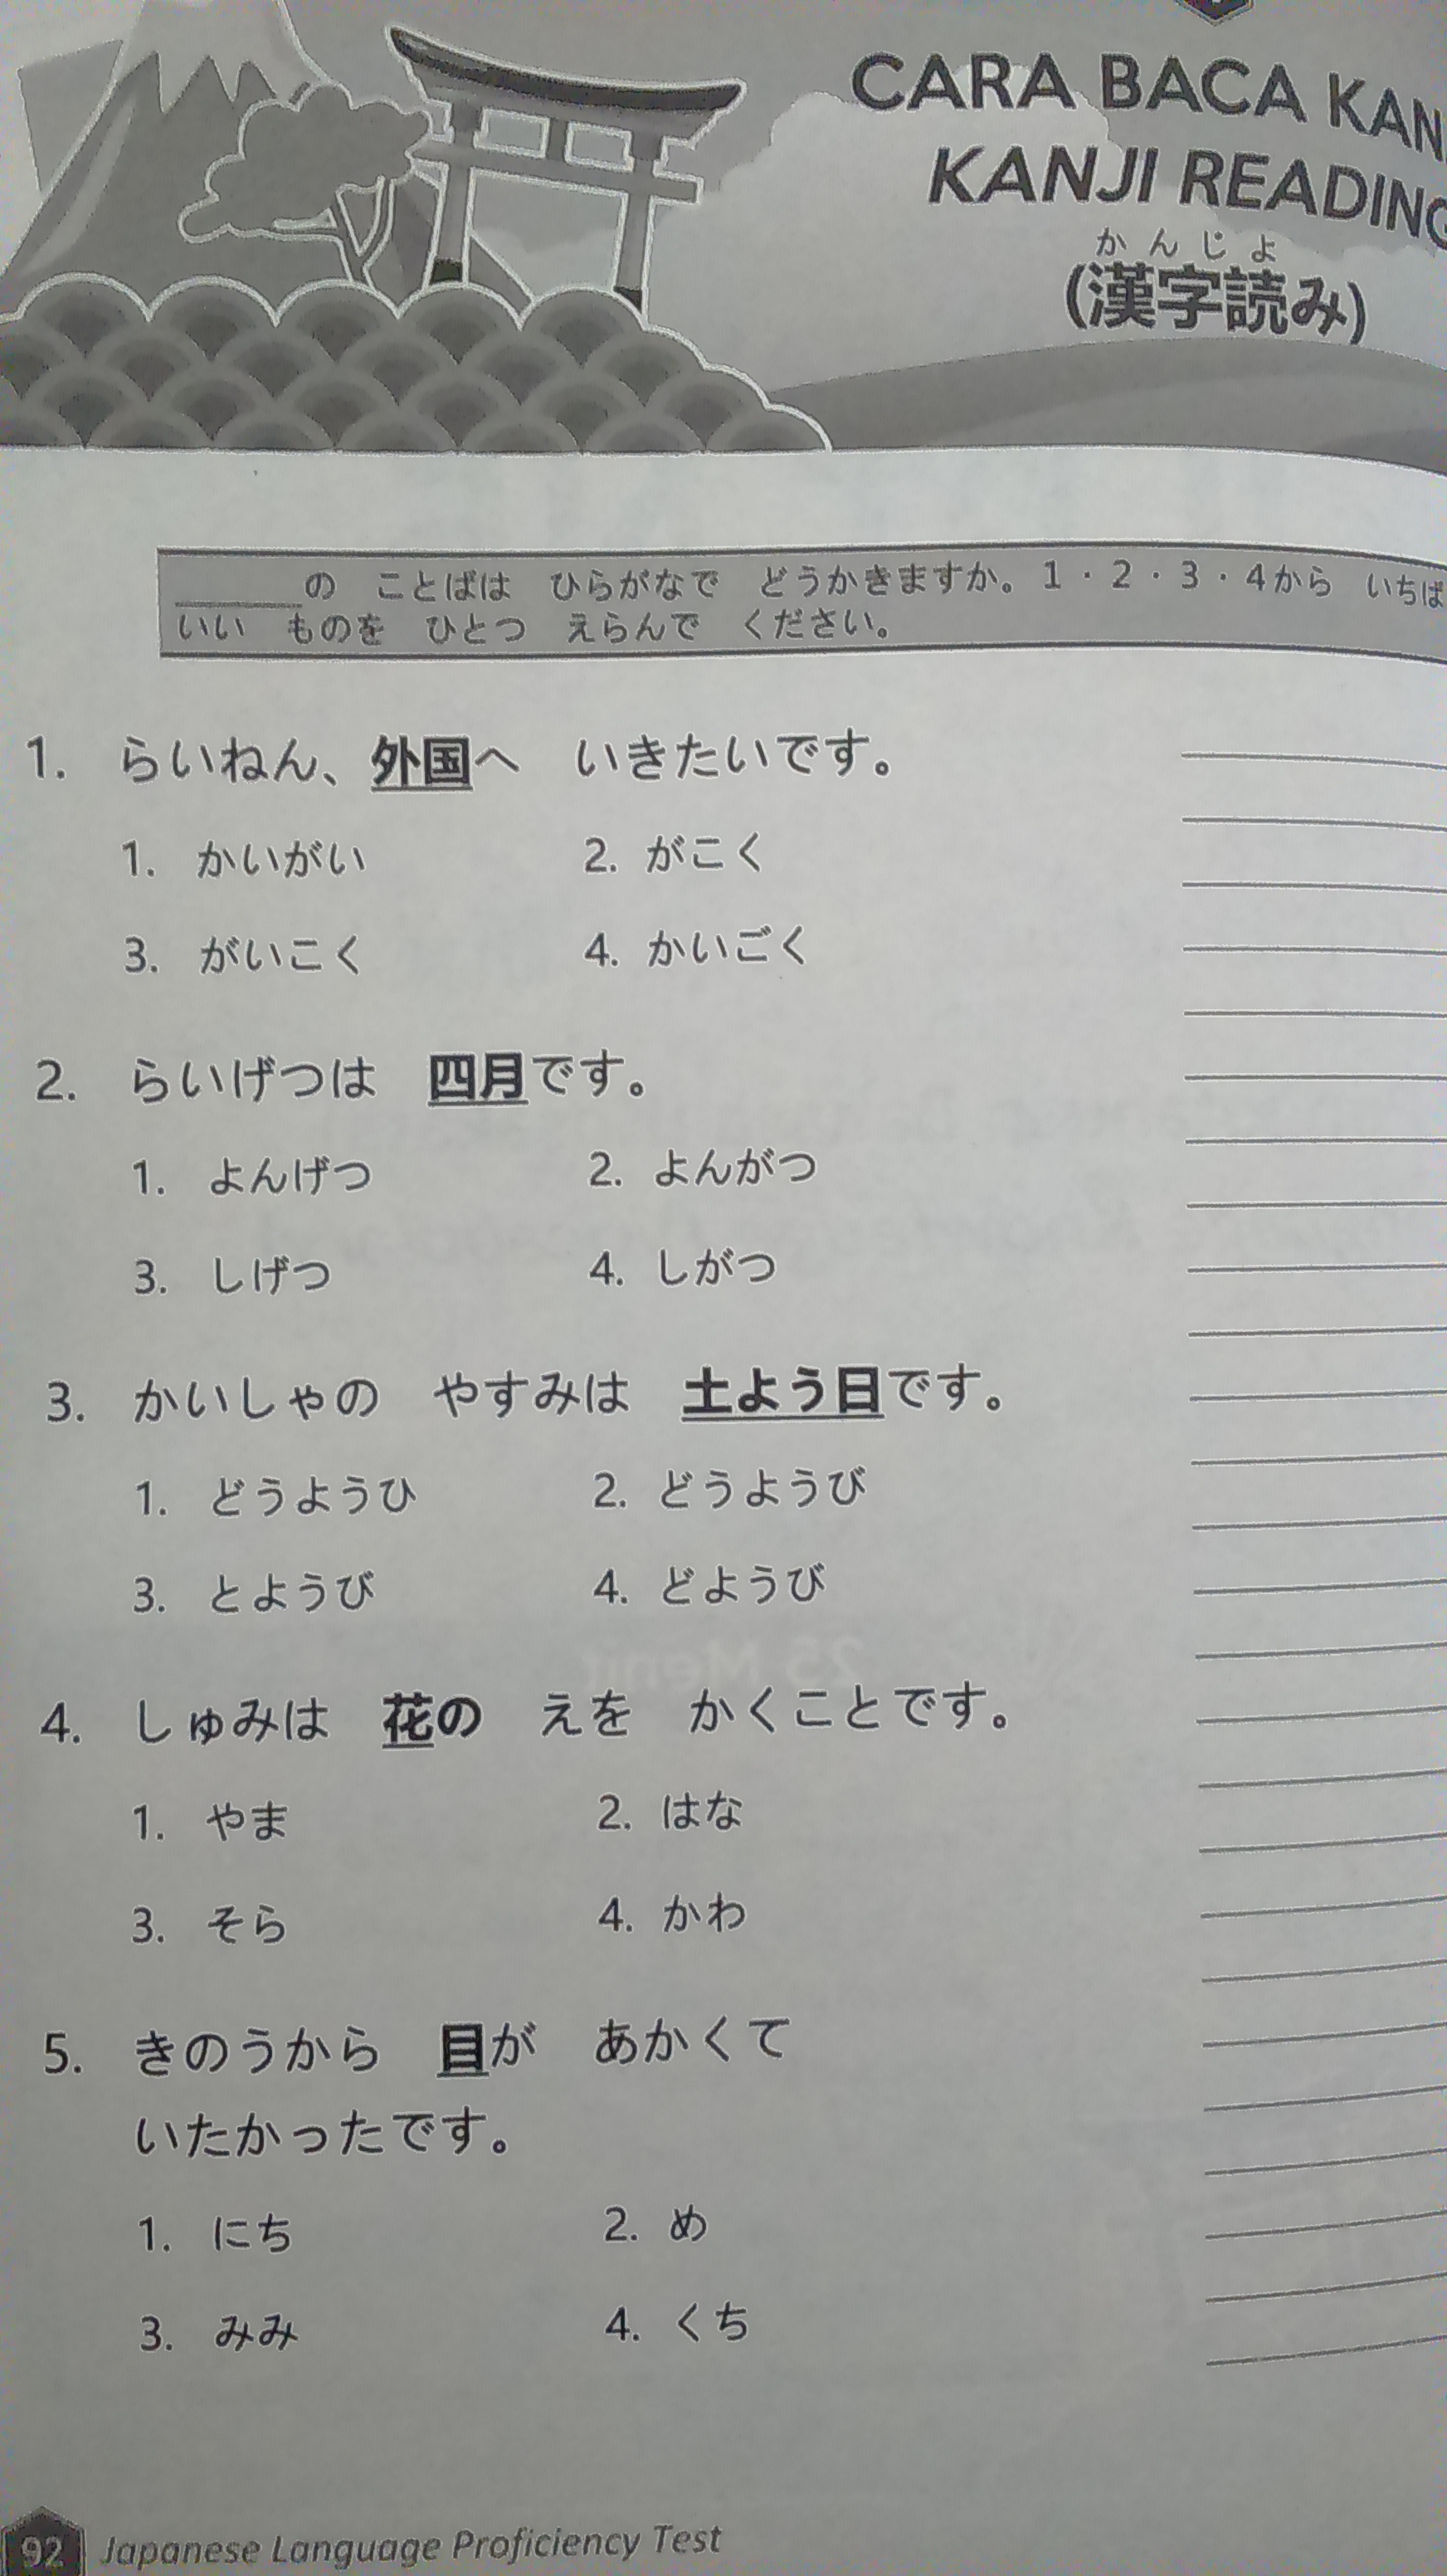 CARA BACA KAN
KANJI READING
かんじよ
(漢字読み)
______の ことばは ひらがなで どうかきますか。1・2・3・4から いちば
いい ものを ひとつ えらんで ください。
1. らいねん、外国へ いきたいです。
1. かいがい 2. がこく
3. がいこく 4. かいごく
2. らいげつは 四月です。
1. よんげつ 2. よんがつ
3. しげつ 4. しがつ
3. かいしゃの やすみは 土よう日です。
1. どうようひ 2. どうようび
3. とようび 4. どようび
4. しゅみは 花の えを かくことです。
1. やま 2. はな
3. そら 4. かわ
5. きのうから 目が あかくて
いたかったです。
1. にち 2. め
3. みみ 4. くち
92 Japanese Language Proficiency Test